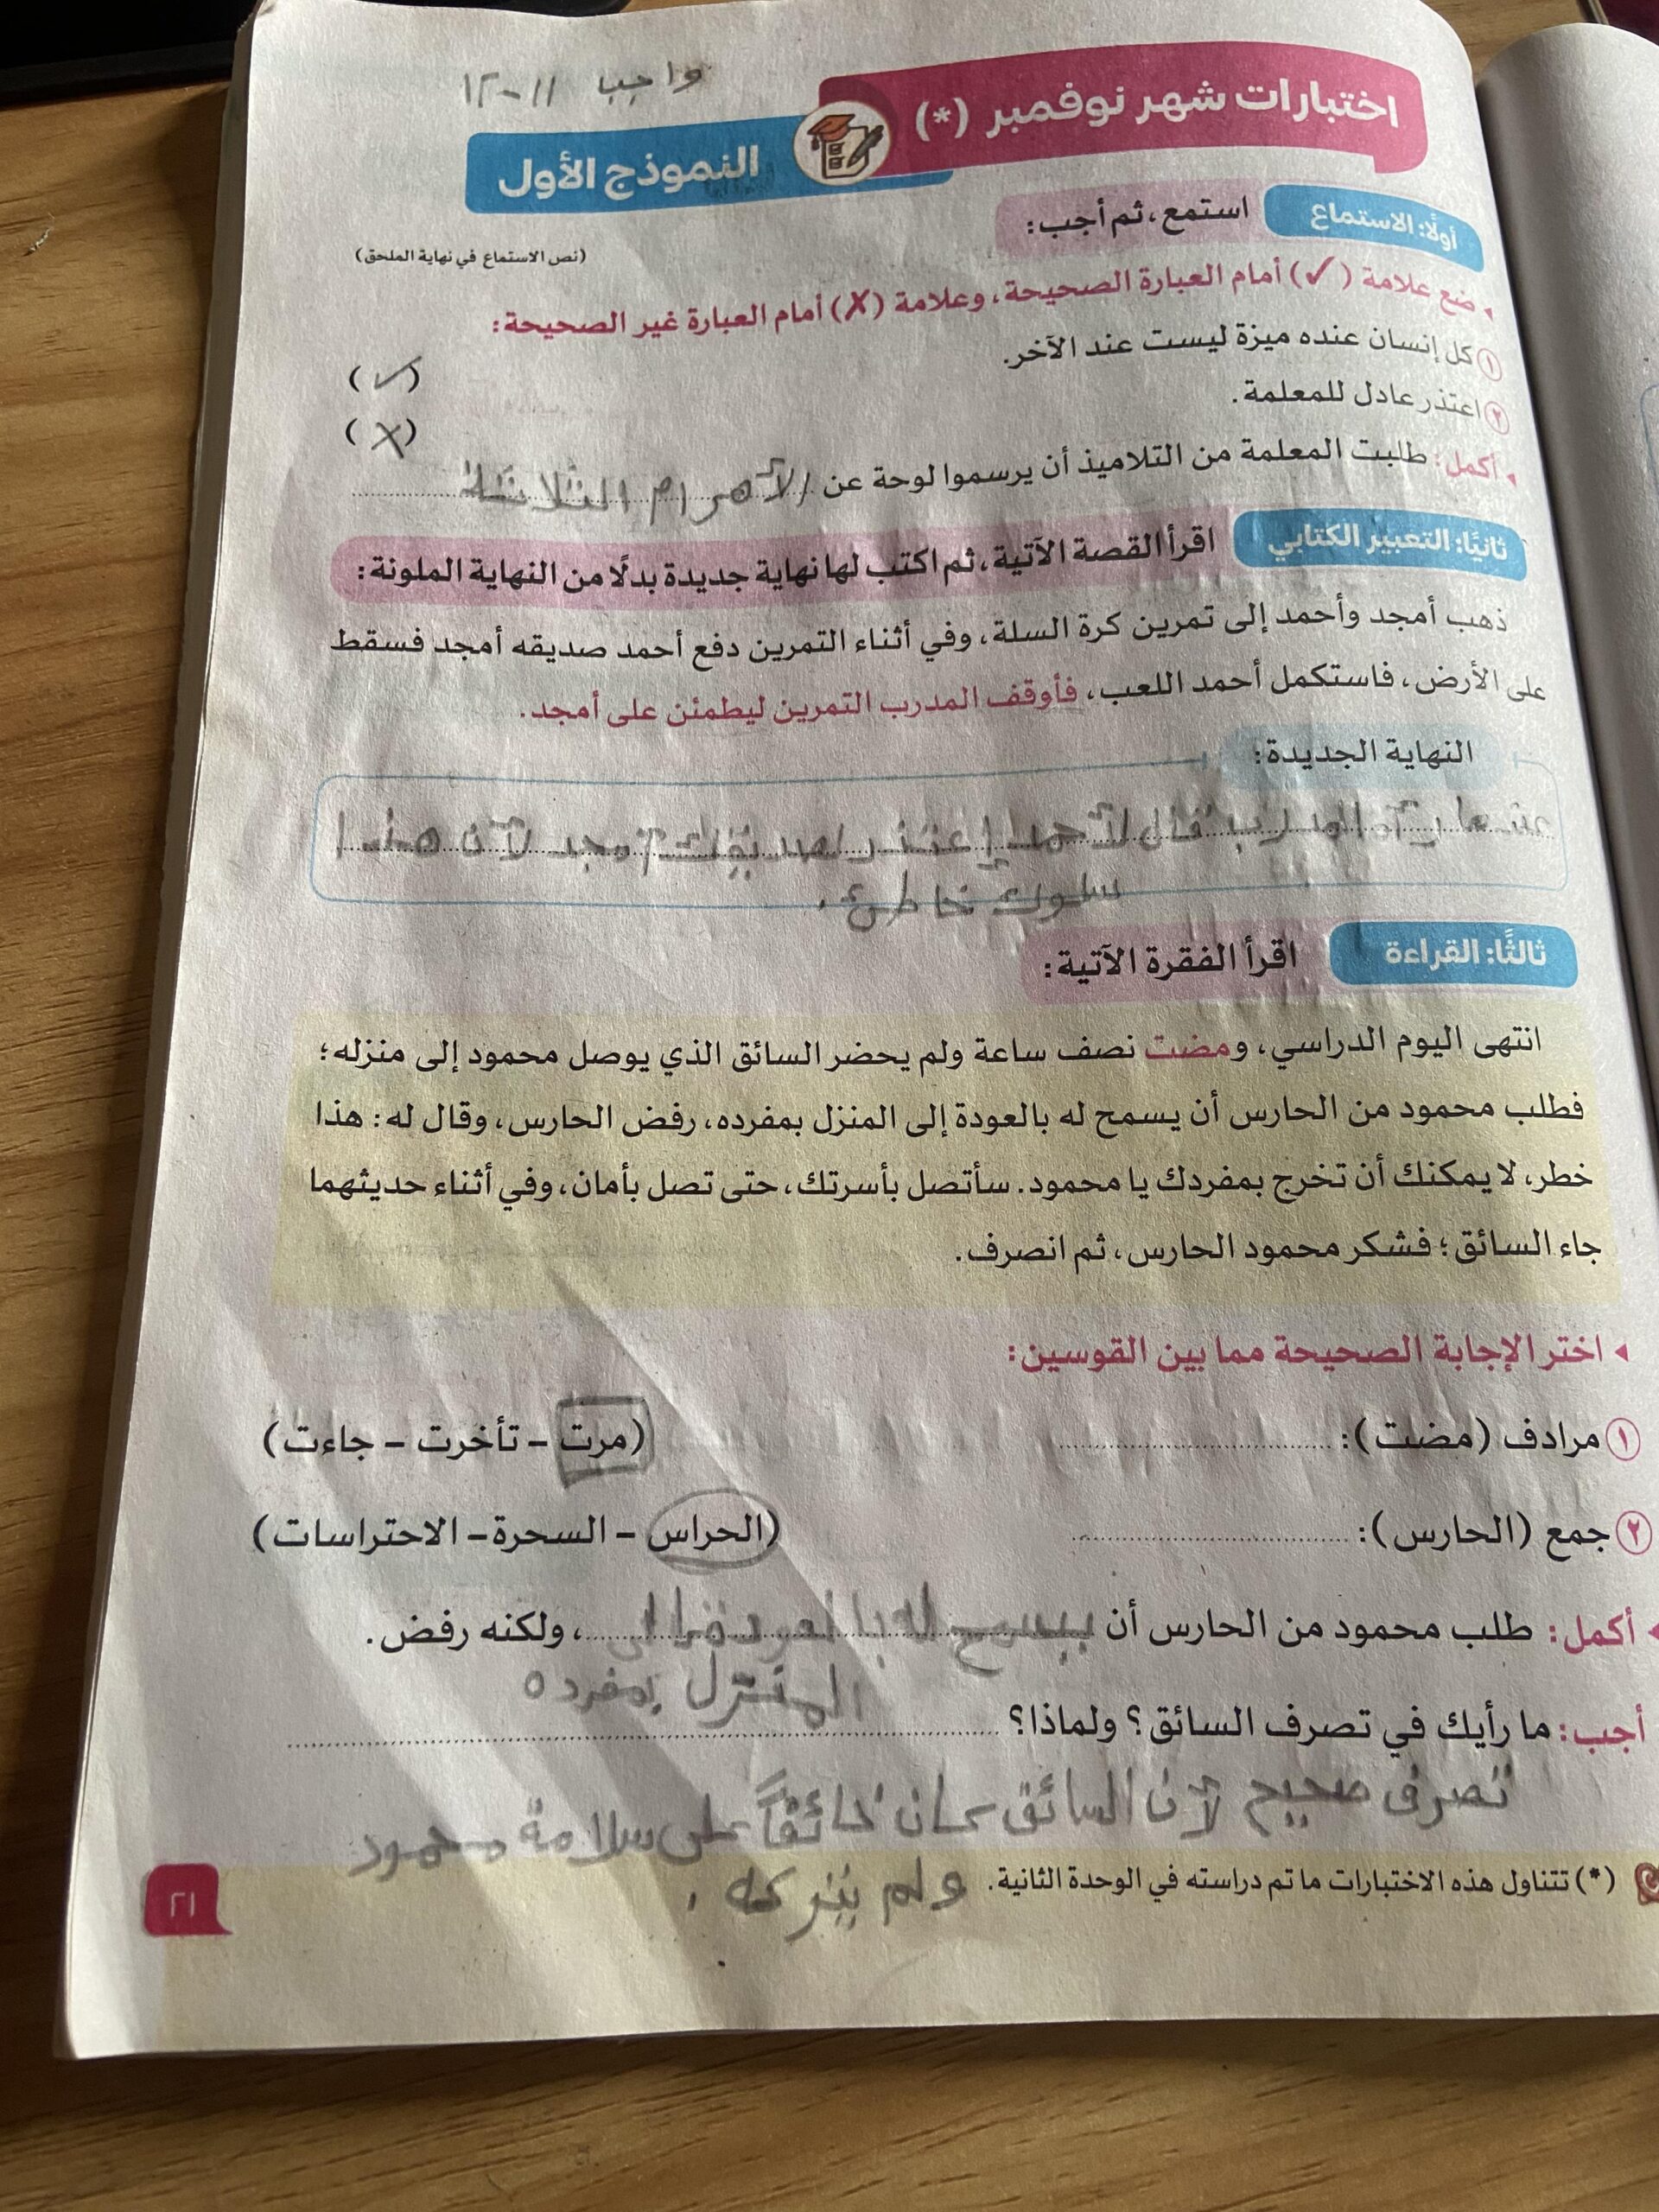 واجب ١١-١٢
اختبارات شهر نوفمبر (*)
النموذج الأول
أولًا: الاستماع استمع، ثم أجب:
(نص الاستماع في نهاية الملحق)
ضع علامة (✓) أمام العبارة الصحيحة، وعلامة (✗) أمام العبارة غير الصحيحة:
١ كل إنسان عنده ميزة ليست عند الآخر. (✓)
٢ اعتذر عادل للمعلمة. (✗)
أكمل: طلبت المعلمة من التلاميذ أن يرسموا لوحة عن الأهرام الثلاثة
ثانيًا: التعبير الكتابي اقرأ القصة الآتية، ثم اكتب لها نهاية جديدة بدلًا من النهاية الملونة:
ذهب أمجد وأحمد إلى تمرين كرة السلة، وفي أثناء التمرين دفع أحمد صديقه أمجد فسقط
على الأرض، فاستكمل أحمد اللعب، فأوقف المدرب التمرين ليطمئن على أمجد.
النهاية الجديدة:
عندما رآه المدرب قال لأحمد إعتذر لصديقك أمجد لأن هذا
سلوك خاطئ.
ثالثًا: القراءة اقرأ الفقرة الآتية:
انتهى اليوم الدراسي، ومضت نصف ساعة ولم يحضر السائق الذي يوصل محمود إلى منزله؛
فطلب محمود من الحارس أن يسمح له بالعودة إلى المنزل بمفرده، رفض الحارس، وقال له: هذا
خطر، لا يمكنك أن تخرج بمفردك يا محمود. سأتصل بأسرتك، حتى تصل بأمان، وفي أثناء حديثهما
جاء السائق؛ فشكر محمود الحارس، ثم انصرف.
اختر الإجابة الصحيحة مما بين القوسين:
١ مرادف (مضت): (مرت - تأخرت - جاءت)
٢ جمع (الحارس): (الحراس - السحرة - الاحتراسات)
أكمل: طلب محمود من الحارس أن يسمح له بالعودة إلى، ولكنه رفض.
المنزل بمفرده
أجب: ما رأيك في تصرف السائق؟ ولماذا؟
تصرف صحيح لأن السائق كان خائفاً على سلامة محمود
ولم يتركه.
(*) تتناول هذه الاختبارات ما تم دراسته في الوحدة الثانية.
٢١